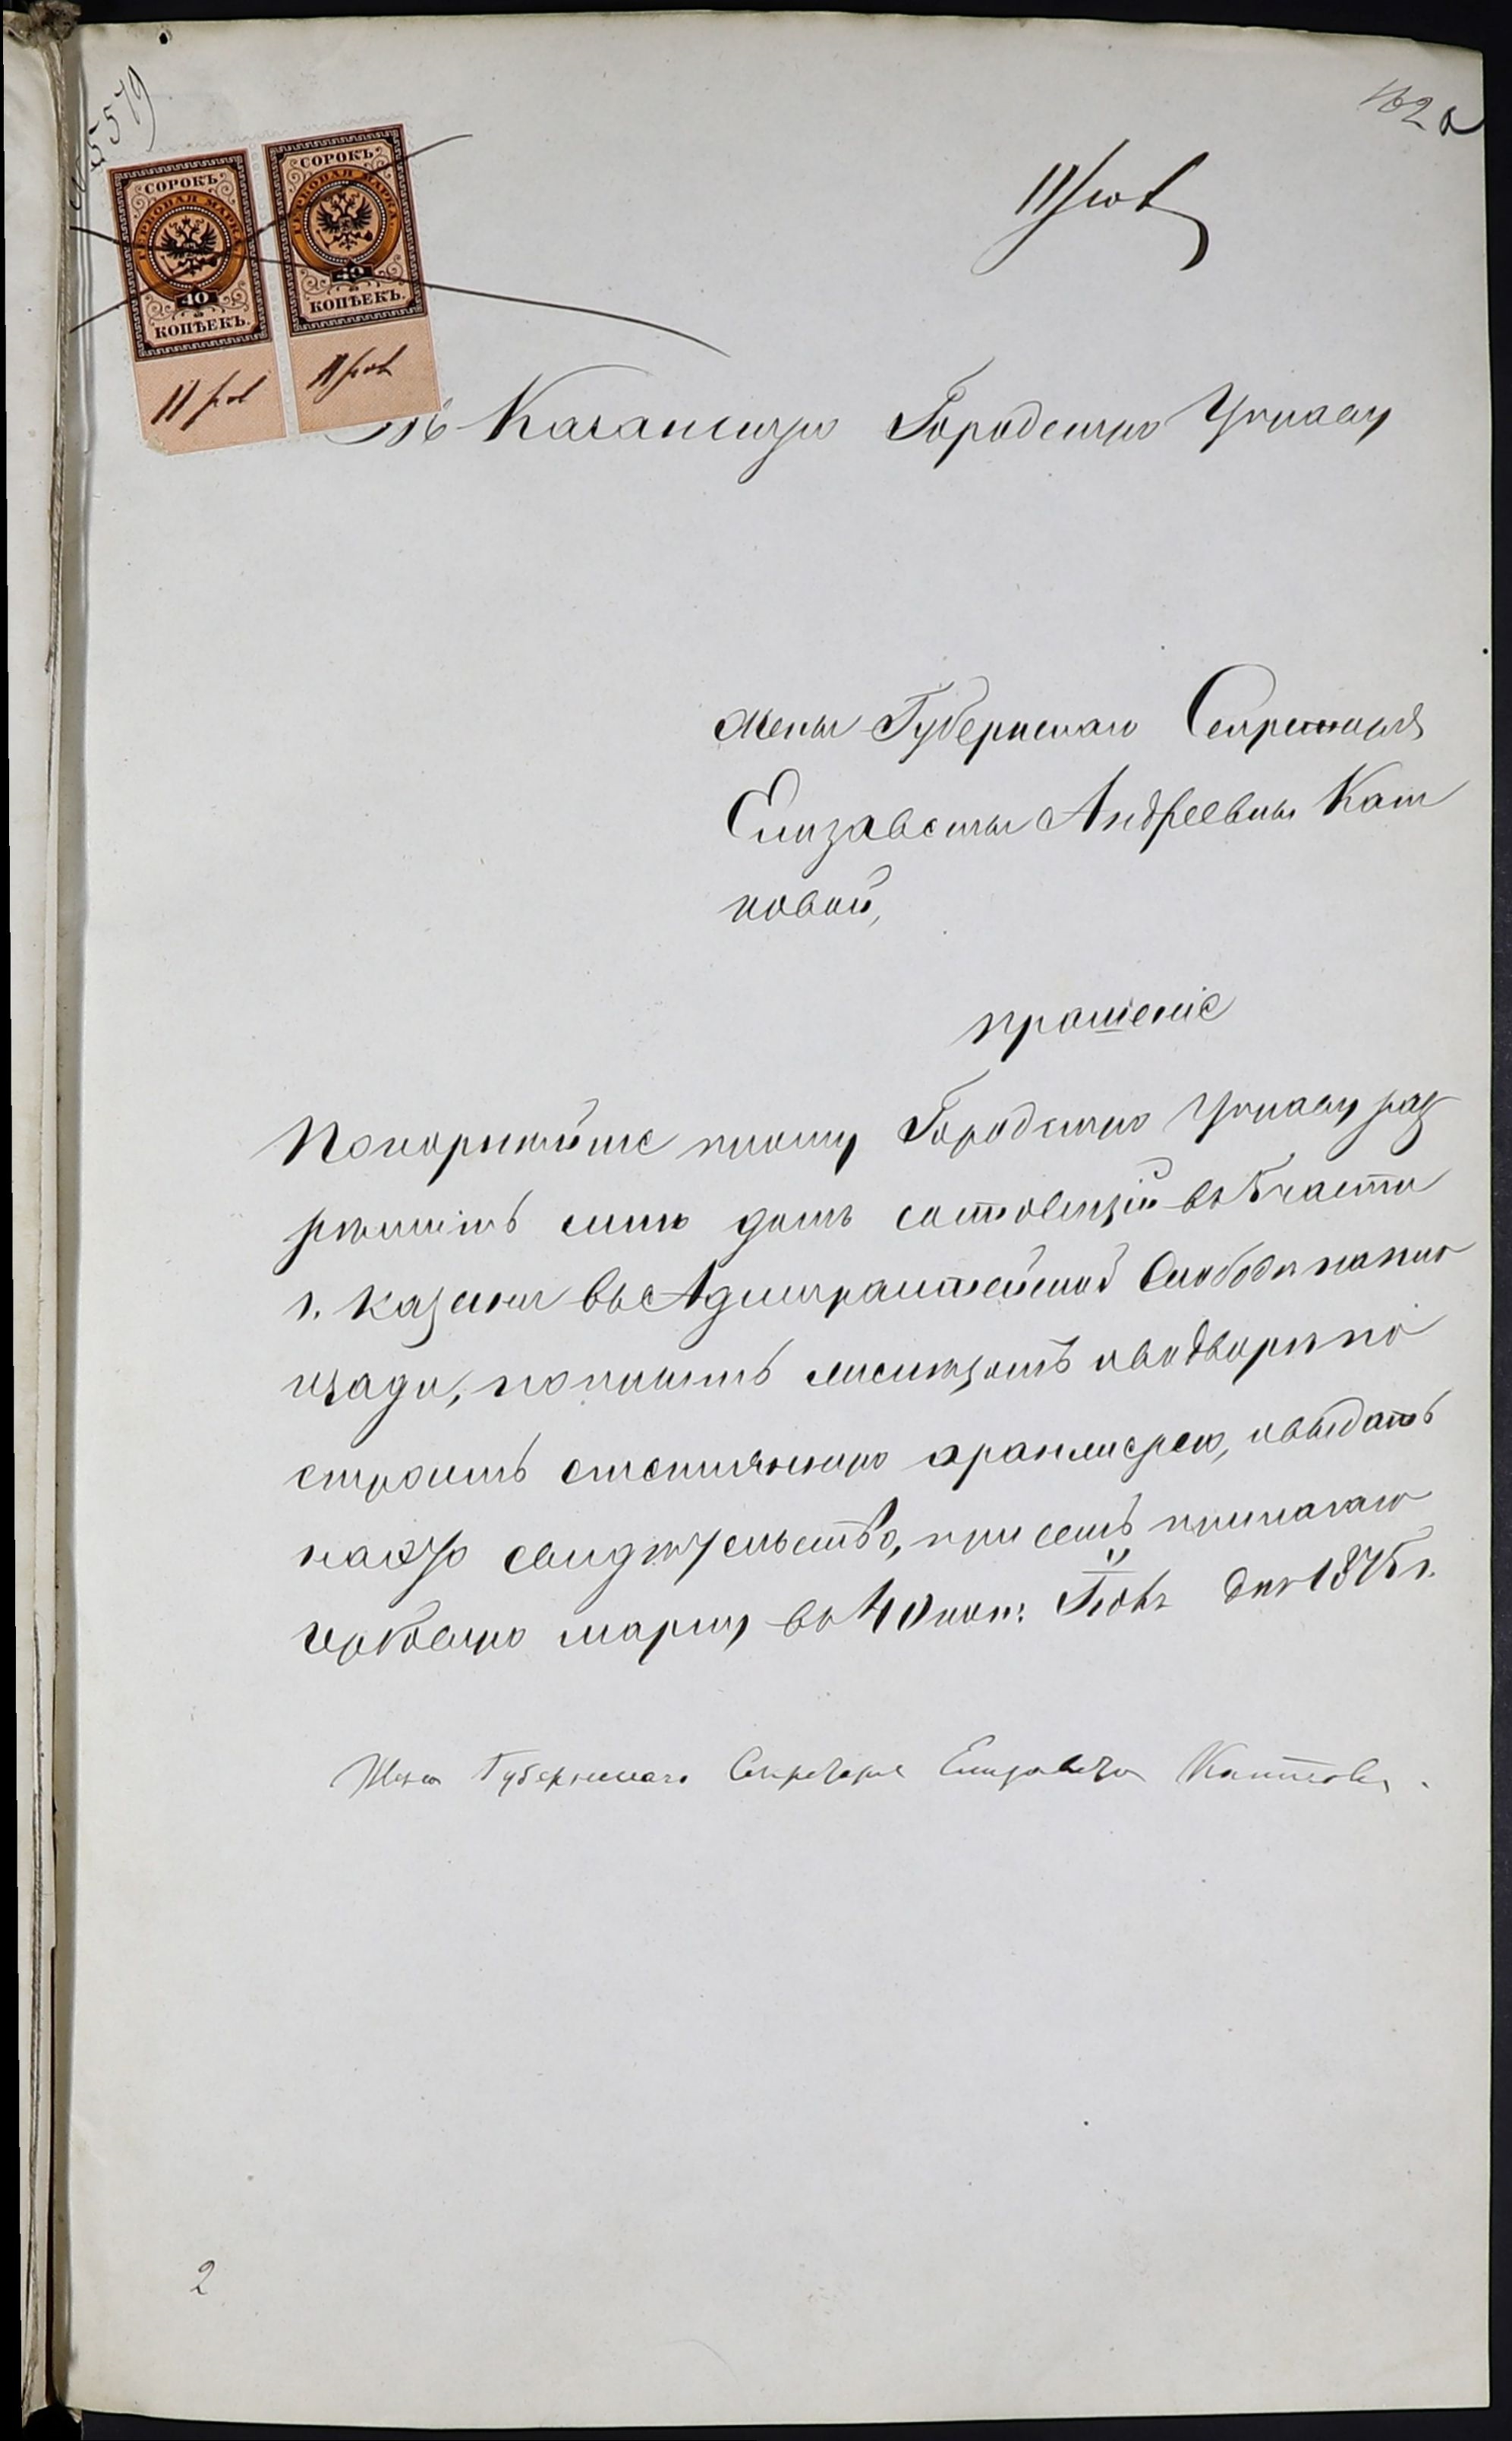 5579
162
11 Іюл
СОРОКЪ
ГЕРБОВАЯ МАРКА
40
КОПѢЕКЪ.
11 Іюл
СОРОКЪ
ГЕРБОВАЯ МАРКА
40
КОПѢЕКЪ.
11 Іюл
Въ Казанскую Городскую Управу
Жены Губернскаго Секретаря
Елизаветы Андреевны Кат
ковой,
прошеніе
Покорнѣйше прошу Городскую Управу раз
рѣшить мнѣ домъ состоящій въ 5 части
г. Казани въ Адмиралтейской Слободѣ на пло
щади, починить и во дворѣ по
строить оранжерею, и выдать
на это свидѣтельство, при семъ прилагаю
гербовую марку въ 40 коп: Іюля 11 дня 1875 г.
Жена Губернскаго Секретаря Елизавета Каткова.
2